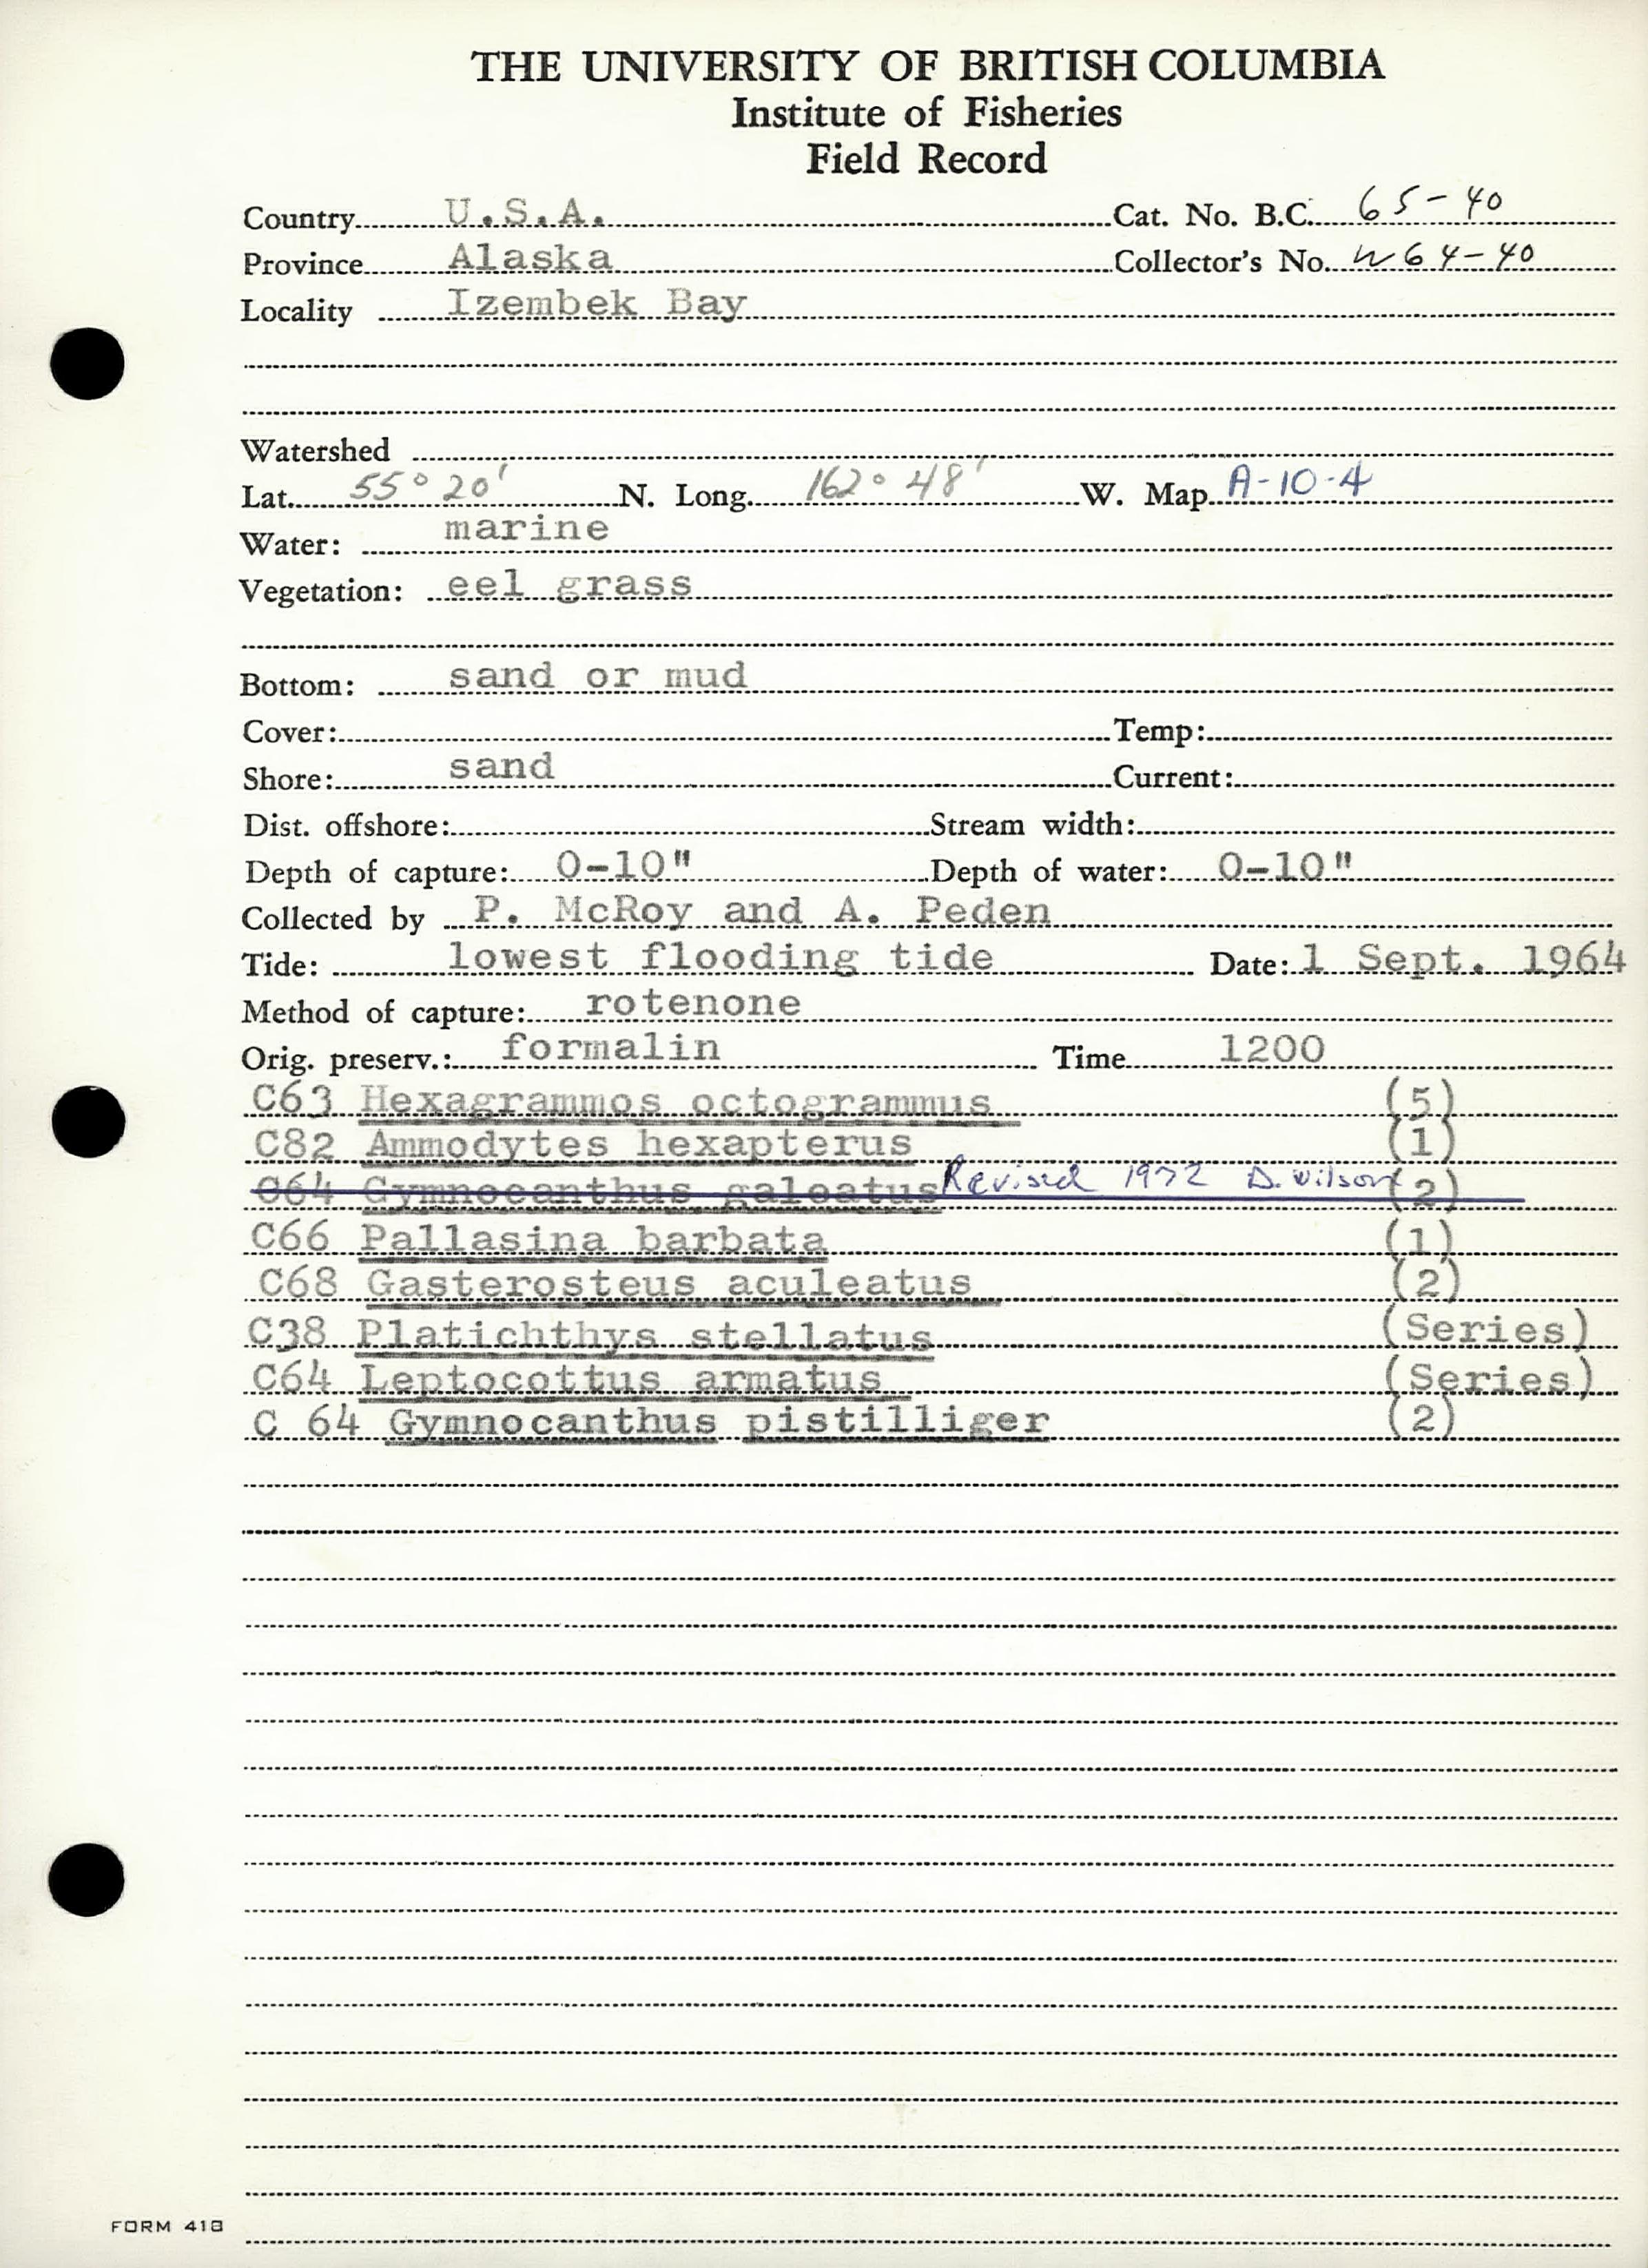 THE UNIVERSITY OF BRITISH COLUMBIA
Institute of Fisheries
Field Record
Country U.S.A. Cat. No. B.C. 65-40
Province Alaska Collector's No. W64-40
Locality Izembek Bay
Watershed
Lat. 55° 20' N. Long. 162° 48' W. Map A-10-4
Water: marine
Vegetation: eel grass
Bottom: sand or mud
Cover: Temp:
Shore: sand Current:
Dist. offshore: Stream width:
Depth of capture: 0-10" Depth of water: 0-10"
Collected by P. McRoy and A. Peden
Tide: lowest flooding tide Date: 1 Sept. 1964
Method of capture: rotenone
Orig. preserv.: formalin Time 1200
C63 Hexagrammos octogrammus (5)
C82 Ammodytes hexapterus (1)
C64 Gymnocanthus galeatus Revised 1972 D. Wilson (2)
C66 Pallasina barbata (1)
C68 Gasterosteus aculeatus (2)
C38 Platichthys stellatus (Series)
C64 Leptocottus armatus (Series)
C 64 Gymnocanthus pistilliger (2)
FORM 418